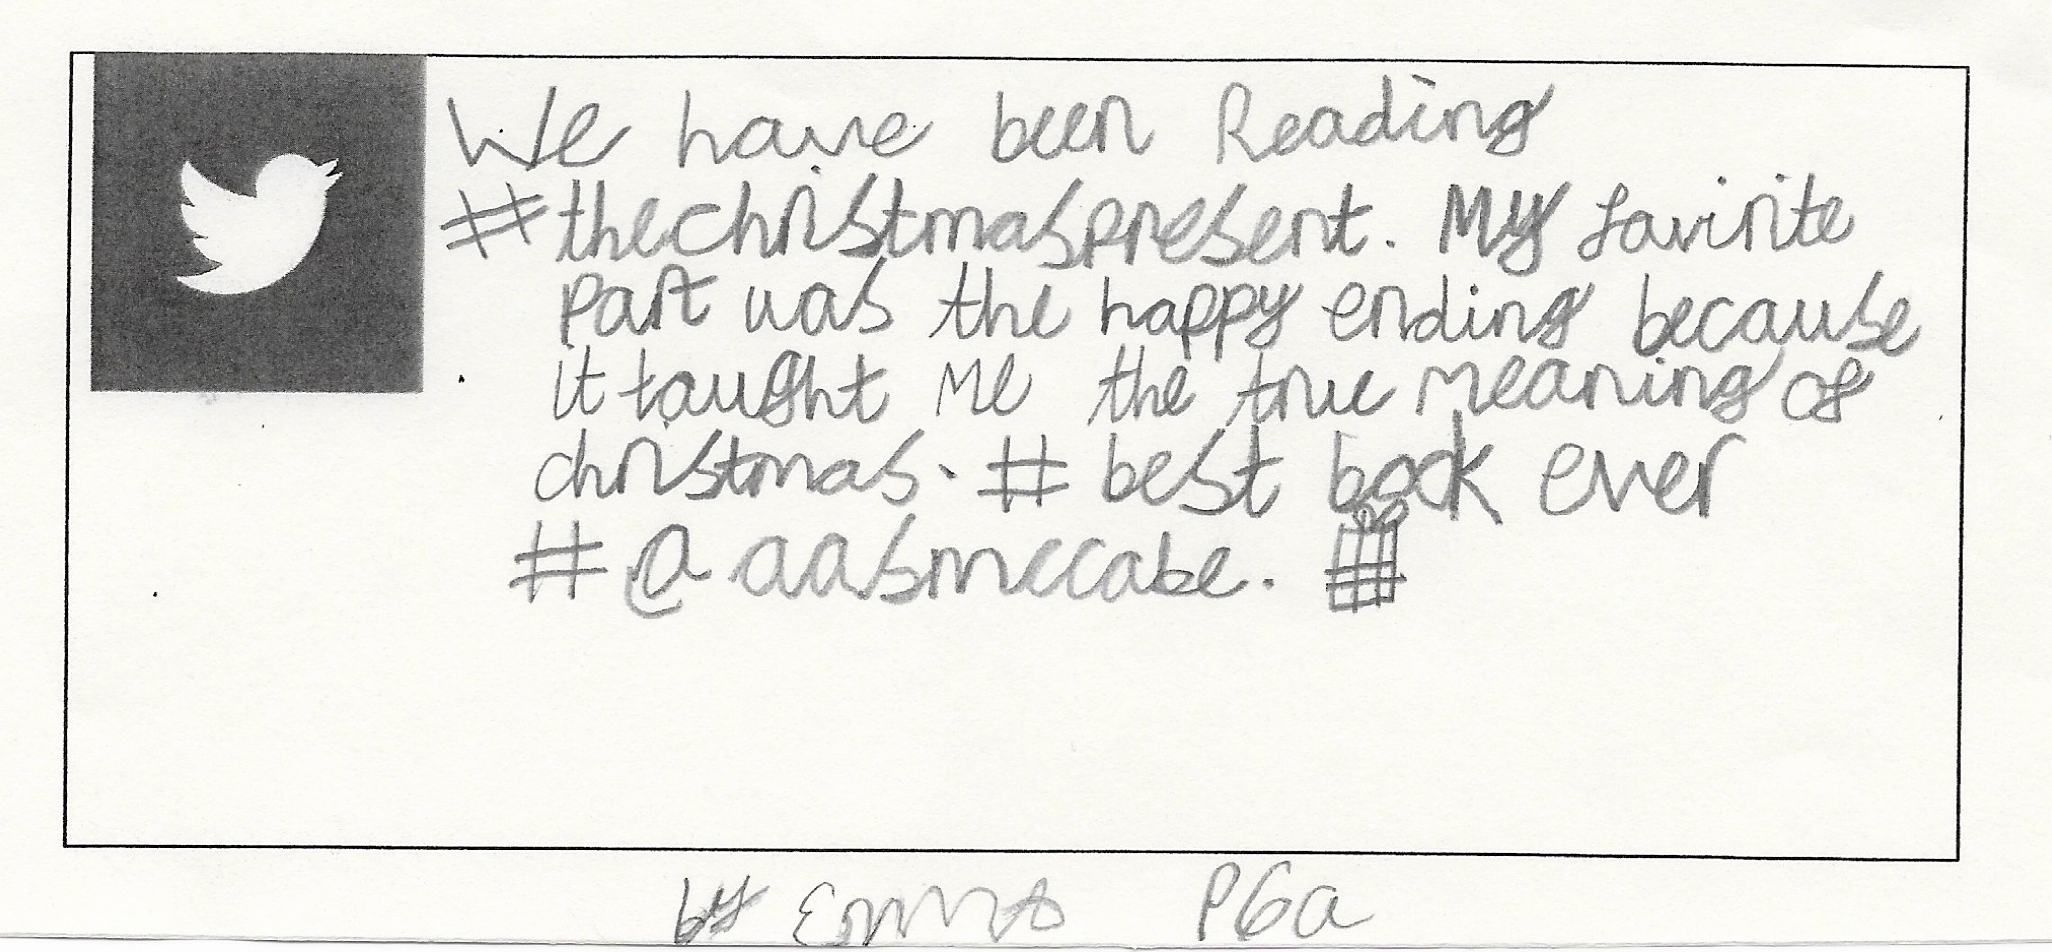 We have been Reading
#thechristmaspresent. My favirite
part was the happy ending because
it taught me the true meaning of
christmas. # best book ever
# @ aasmccabe. #
by Emma P6a